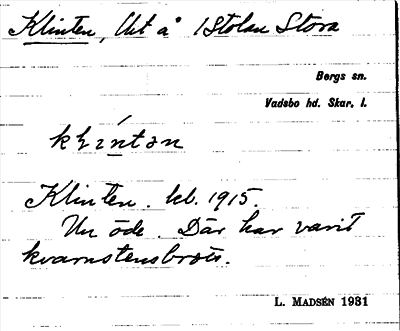 Klinten, Ut å Stolan Stora
Bergs sn.
Vadsbo hd. Skar. l.
klíntən
Klinten. kl. 1915.
Nu öde. Där har varit
kvarnstensbrott.
L. MADSÉN 1931